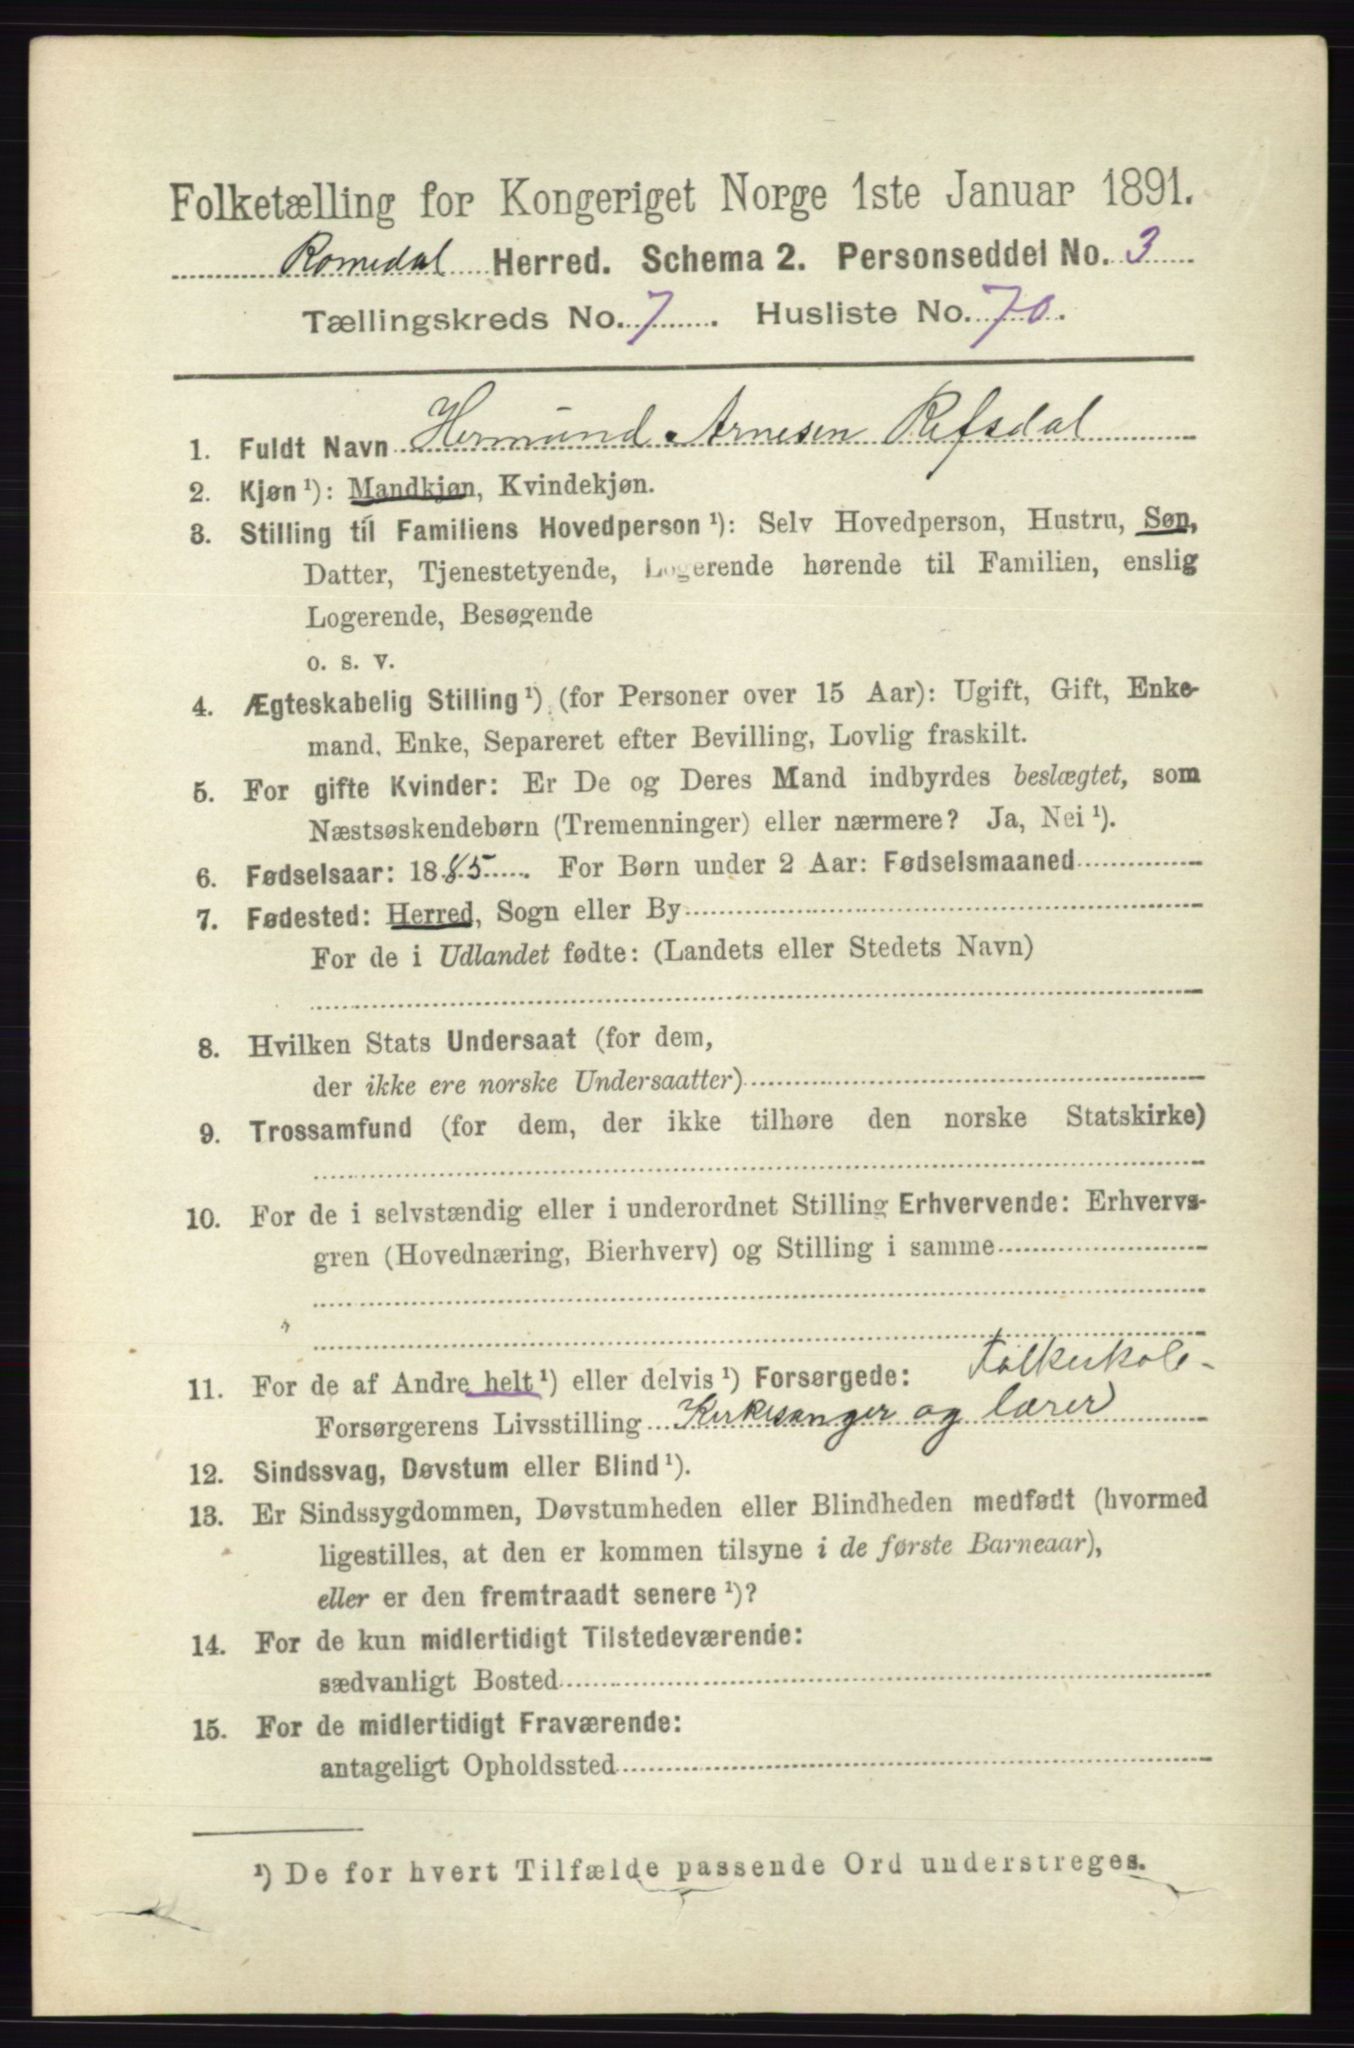 Folketælling for Kongeriget Norge 1ste Januar 1891.
Romedal Herred. Schema 2. Personseddel No. 3
Tællingskreds No. 7. Husliste No. 70.
1. Fuldt Navn Hermund Arnesen Refsdal
2. Kjøn ¹): Mandkjøn, Kvindekjøn.
3. Stilling til Familiens Hovedperson ¹): Selv Hovedperson, Hustru, Søn,
Datter, Tjenestetyende, Logerende hørende til Familien, enslig
Logerende, Besøgende
o. s. v.
4. Ægteskabelig Stilling ¹) (for Personer over 15 Aar): Ugift, Gift, Enke-
mand, Enke, Separeret efter Bevilling, Lovlig fraskilt.
5. For gifte Kvinder: Er De og Deres Mand indbyrdes beslægtet, som
Næstsøskendebørn (Tremenninger) eller nærmere? Ja, Nei ¹).
6. Fødselsaar: 1885. For Børn under 2 Aar: Fødselsmaaned
7. Fødested: Herred, Sogn eller By
For de i Udlandet fødte: (Landets eller Stedets Navn)
8. Hvilken Stats Undersaat (for dem,
der ikke ere norske Undersaatter)
9. Trossamfund (for dem, der ikke tilhøre den norske Statskirke)
10. For de i selvstændig eller i underordnet Stilling Erhvervende: Erhvervs-
gren (Hovednæring, Bierhverv) og Stilling i samme
11. For de af Andre helt ¹) eller delvis ¹) Forsørgede: Folkeskole-
Forsørgerens Livsstilling Kirkesanger og lærer
12. Sindssvag, Døvstum eller Blind ¹).
13. Er Sindssygdommen, Døvstumheden eller Blindheden medfødt (hvormed
ligestilles, at den er kommen tilsyne i de første Barneaar),
eller er den fremtraadt senere ¹)?
14. For de kun midlertidigt Tilstedeværende:
sædvanligt Bosted
15. For de midlertidigt Fraværende:
antageligt Opholdssted
¹) De for hvert Tilfælde passende Ord understreges.